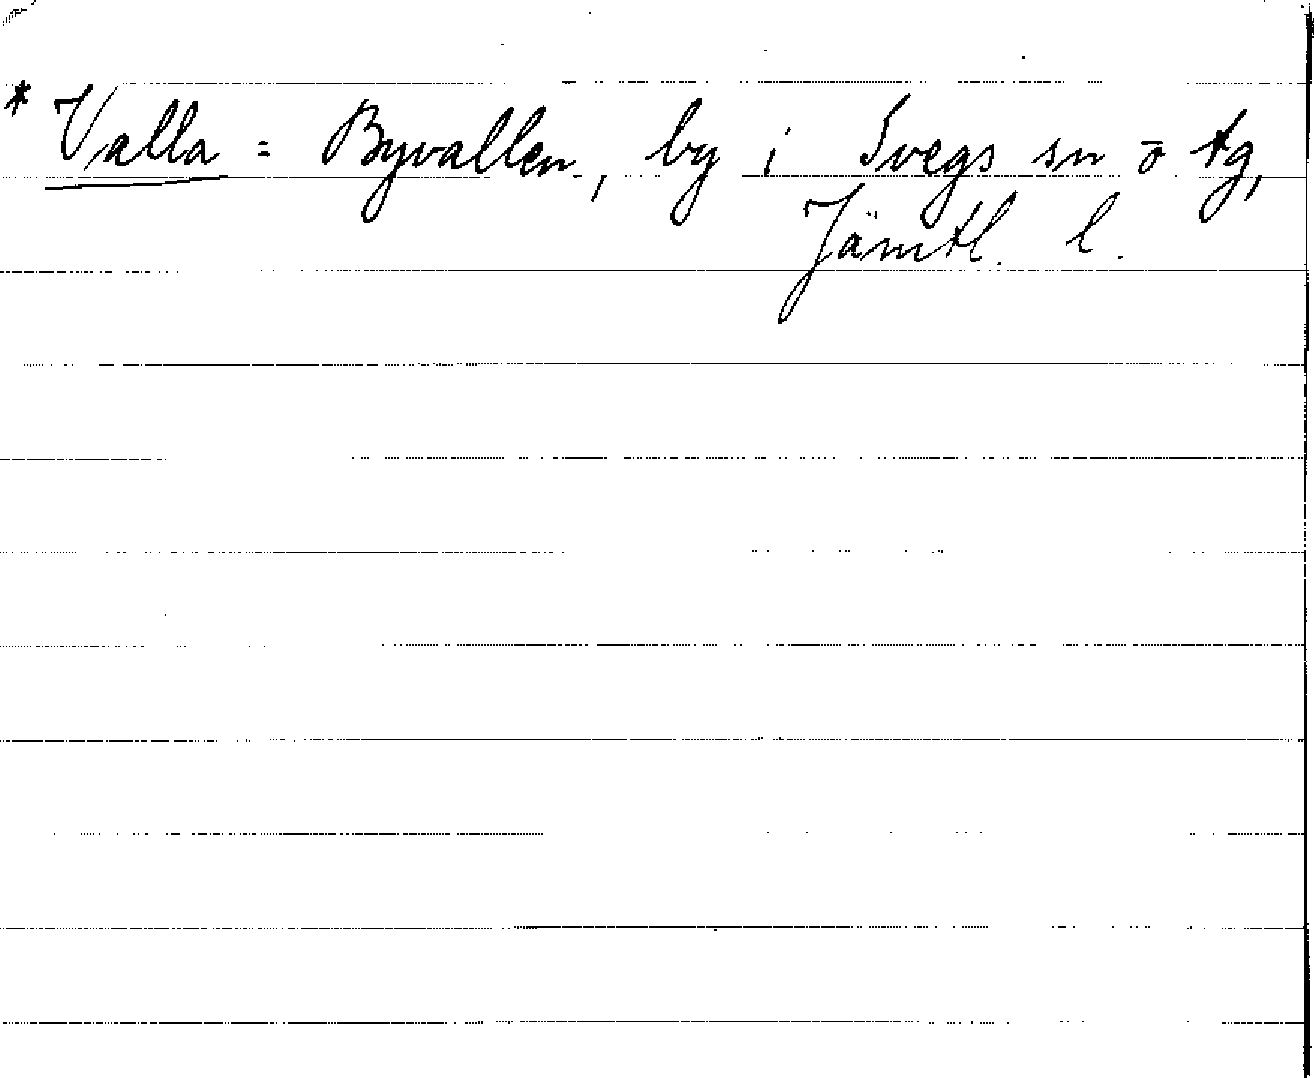 * Valla = Byvallen, by i Svegs sn o tg,
Jämtl. l.